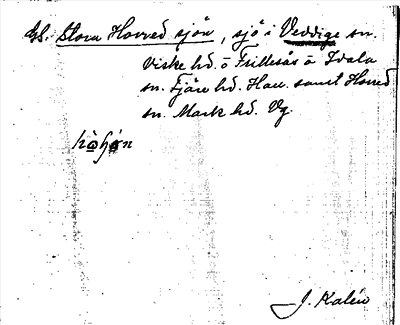 Stora Horred sjön, sjö i Veddige sn.
Viske hd. o Frillesås o Idala
sn. Fjäre hd. Hall. samt Horred
sn. Mark hd. Vg.
J. Kalén